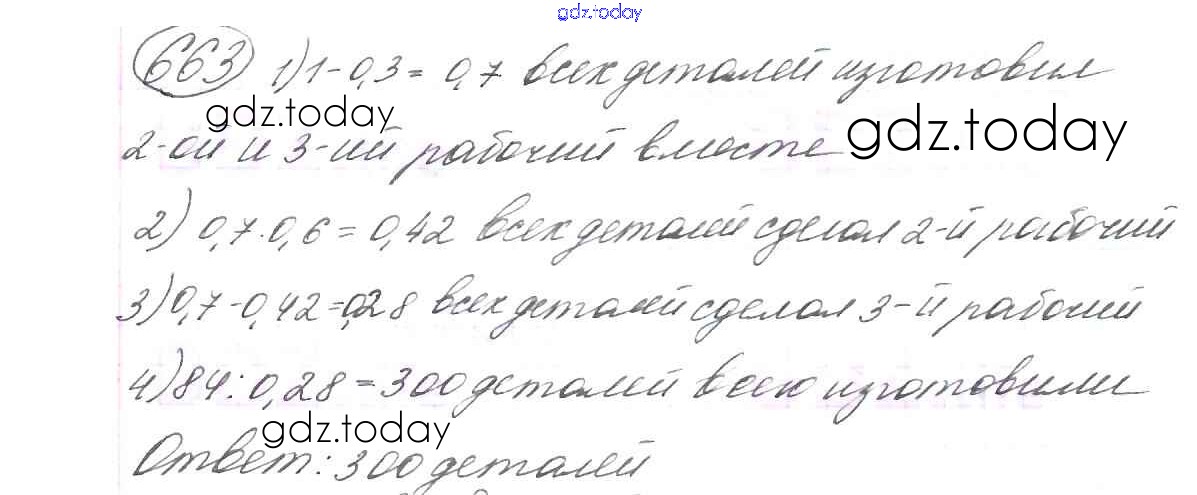 gdz.today
663 1) 1-0,3 = 0,7 всех деталей изготовил
gdz.today
2-ой и 3-ий рабочий вместе gdz.today
2) 0,7·0,6 = 0,42 всех деталей сделал 2-й рабочий
3) 0,7-0,42=0,28 всех деталей сделал 3-й рабочий
4) 84:0,28 = 300 деталей всего изготовили
gdz.today
Ответ: 300 деталей